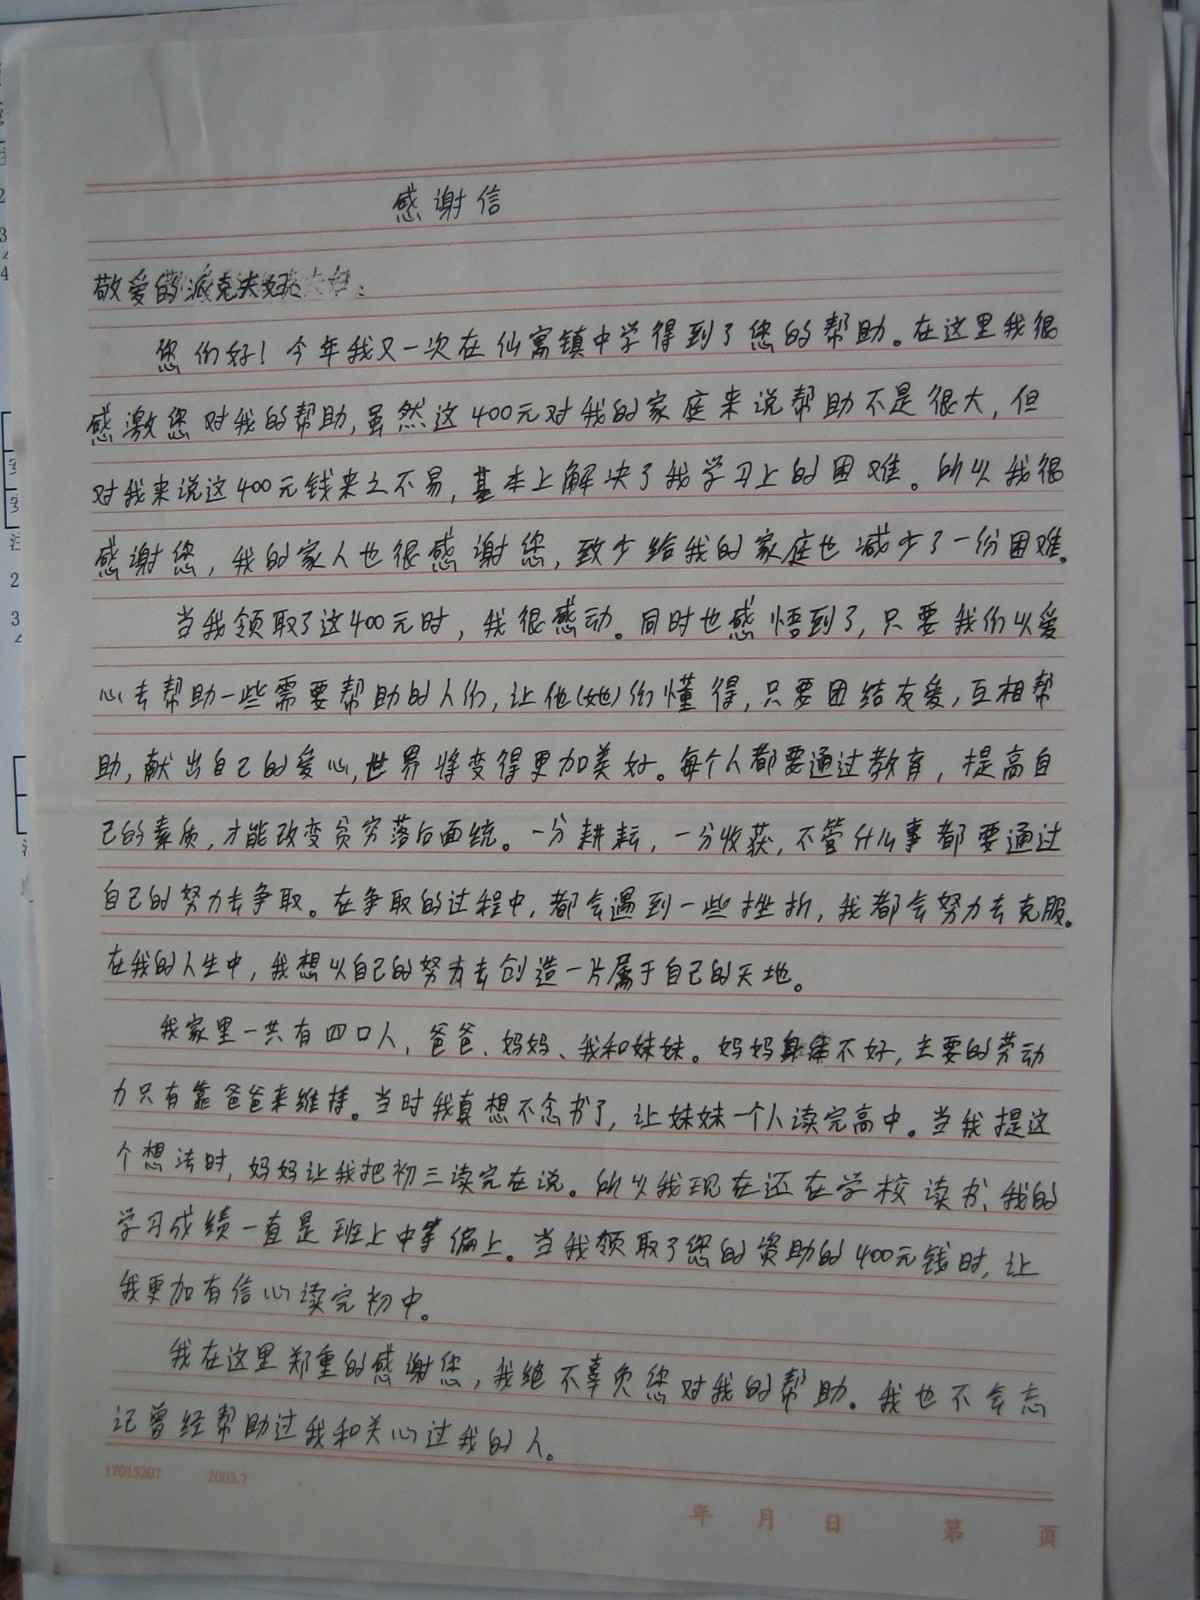 感谢信
敬爱的派克夫妇:
您们好！今年我又一次在仙寓镇中学得到了您的帮助。在这里我很
感激您对我的帮助,虽然这400元对我的家庭来说帮助不是很大,但
对我来说这400元钱来之不易,基本上解决了我学习上的困难。所以我很
感谢您,我的家人也很感谢您,致少给我的家庭也减少了一份困难。
当我领取了这400元时,我很感动。同时也感悟到了,只要我们以爱
心去帮助一些需要帮助的人们,让他(她)们懂得,只要团结友爱,互相帮
助,献出自己的爱心,世界将变得更加美好。每个人都要通过教育,提高自
己的素质,才能改变贫穷落后面统。一分耕耘,一分收获,不管什么事都要通过
自己的努力去争取。在争取的过程中,都会遇到一些挫折,我都会努力去克服。
在我的人生中,我想以自己的努力去创造一片属于自己的天地。
我家里一共有四口人,爸爸、妈妈、我和妹妹。妈妈身体不好,主要的劳动
力只有靠爸爸来维持。当时我真想不念书了,让妹妹一个人读完高中。当我提这
个想法时,妈妈让我把初三读完在说。所以我现在还在学校读书、我的
学习成绩一直是班上中等偏上。当我领取了您的资助的400元钱时,让
我更加有信心读完初中。
我在这里郑重的感谢您,我绝不辜负您对我的帮助。我也不会忘
记曾经帮助过我和关心过我的人。
17015207 2005.7
年 月 日 第 页